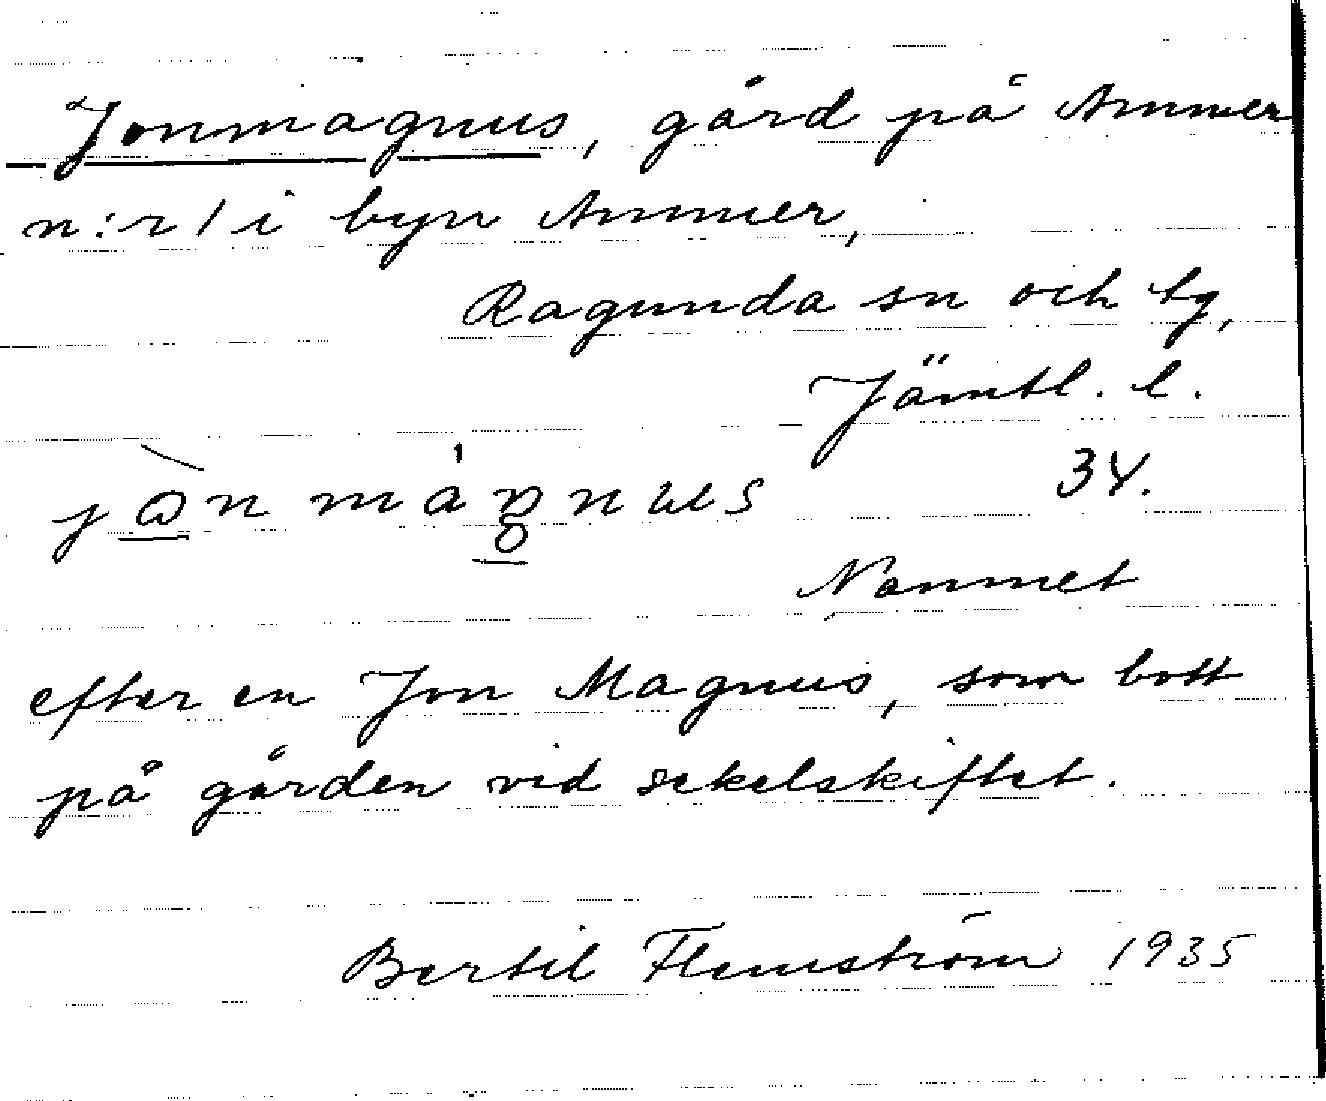 Jonmagnus, gård på Ammer
n:r 1 i byn Ammer,
Ragunda sn och tg,
Jämtl. l.
34.
Namnet
efter en Jon Magnus, som bott
på gården vid sekelskiftet.
Bertil Flemström 1935